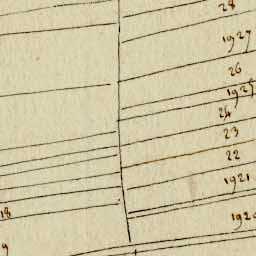 28
1927
26
1925
24
23
22
1921
18
1920
9